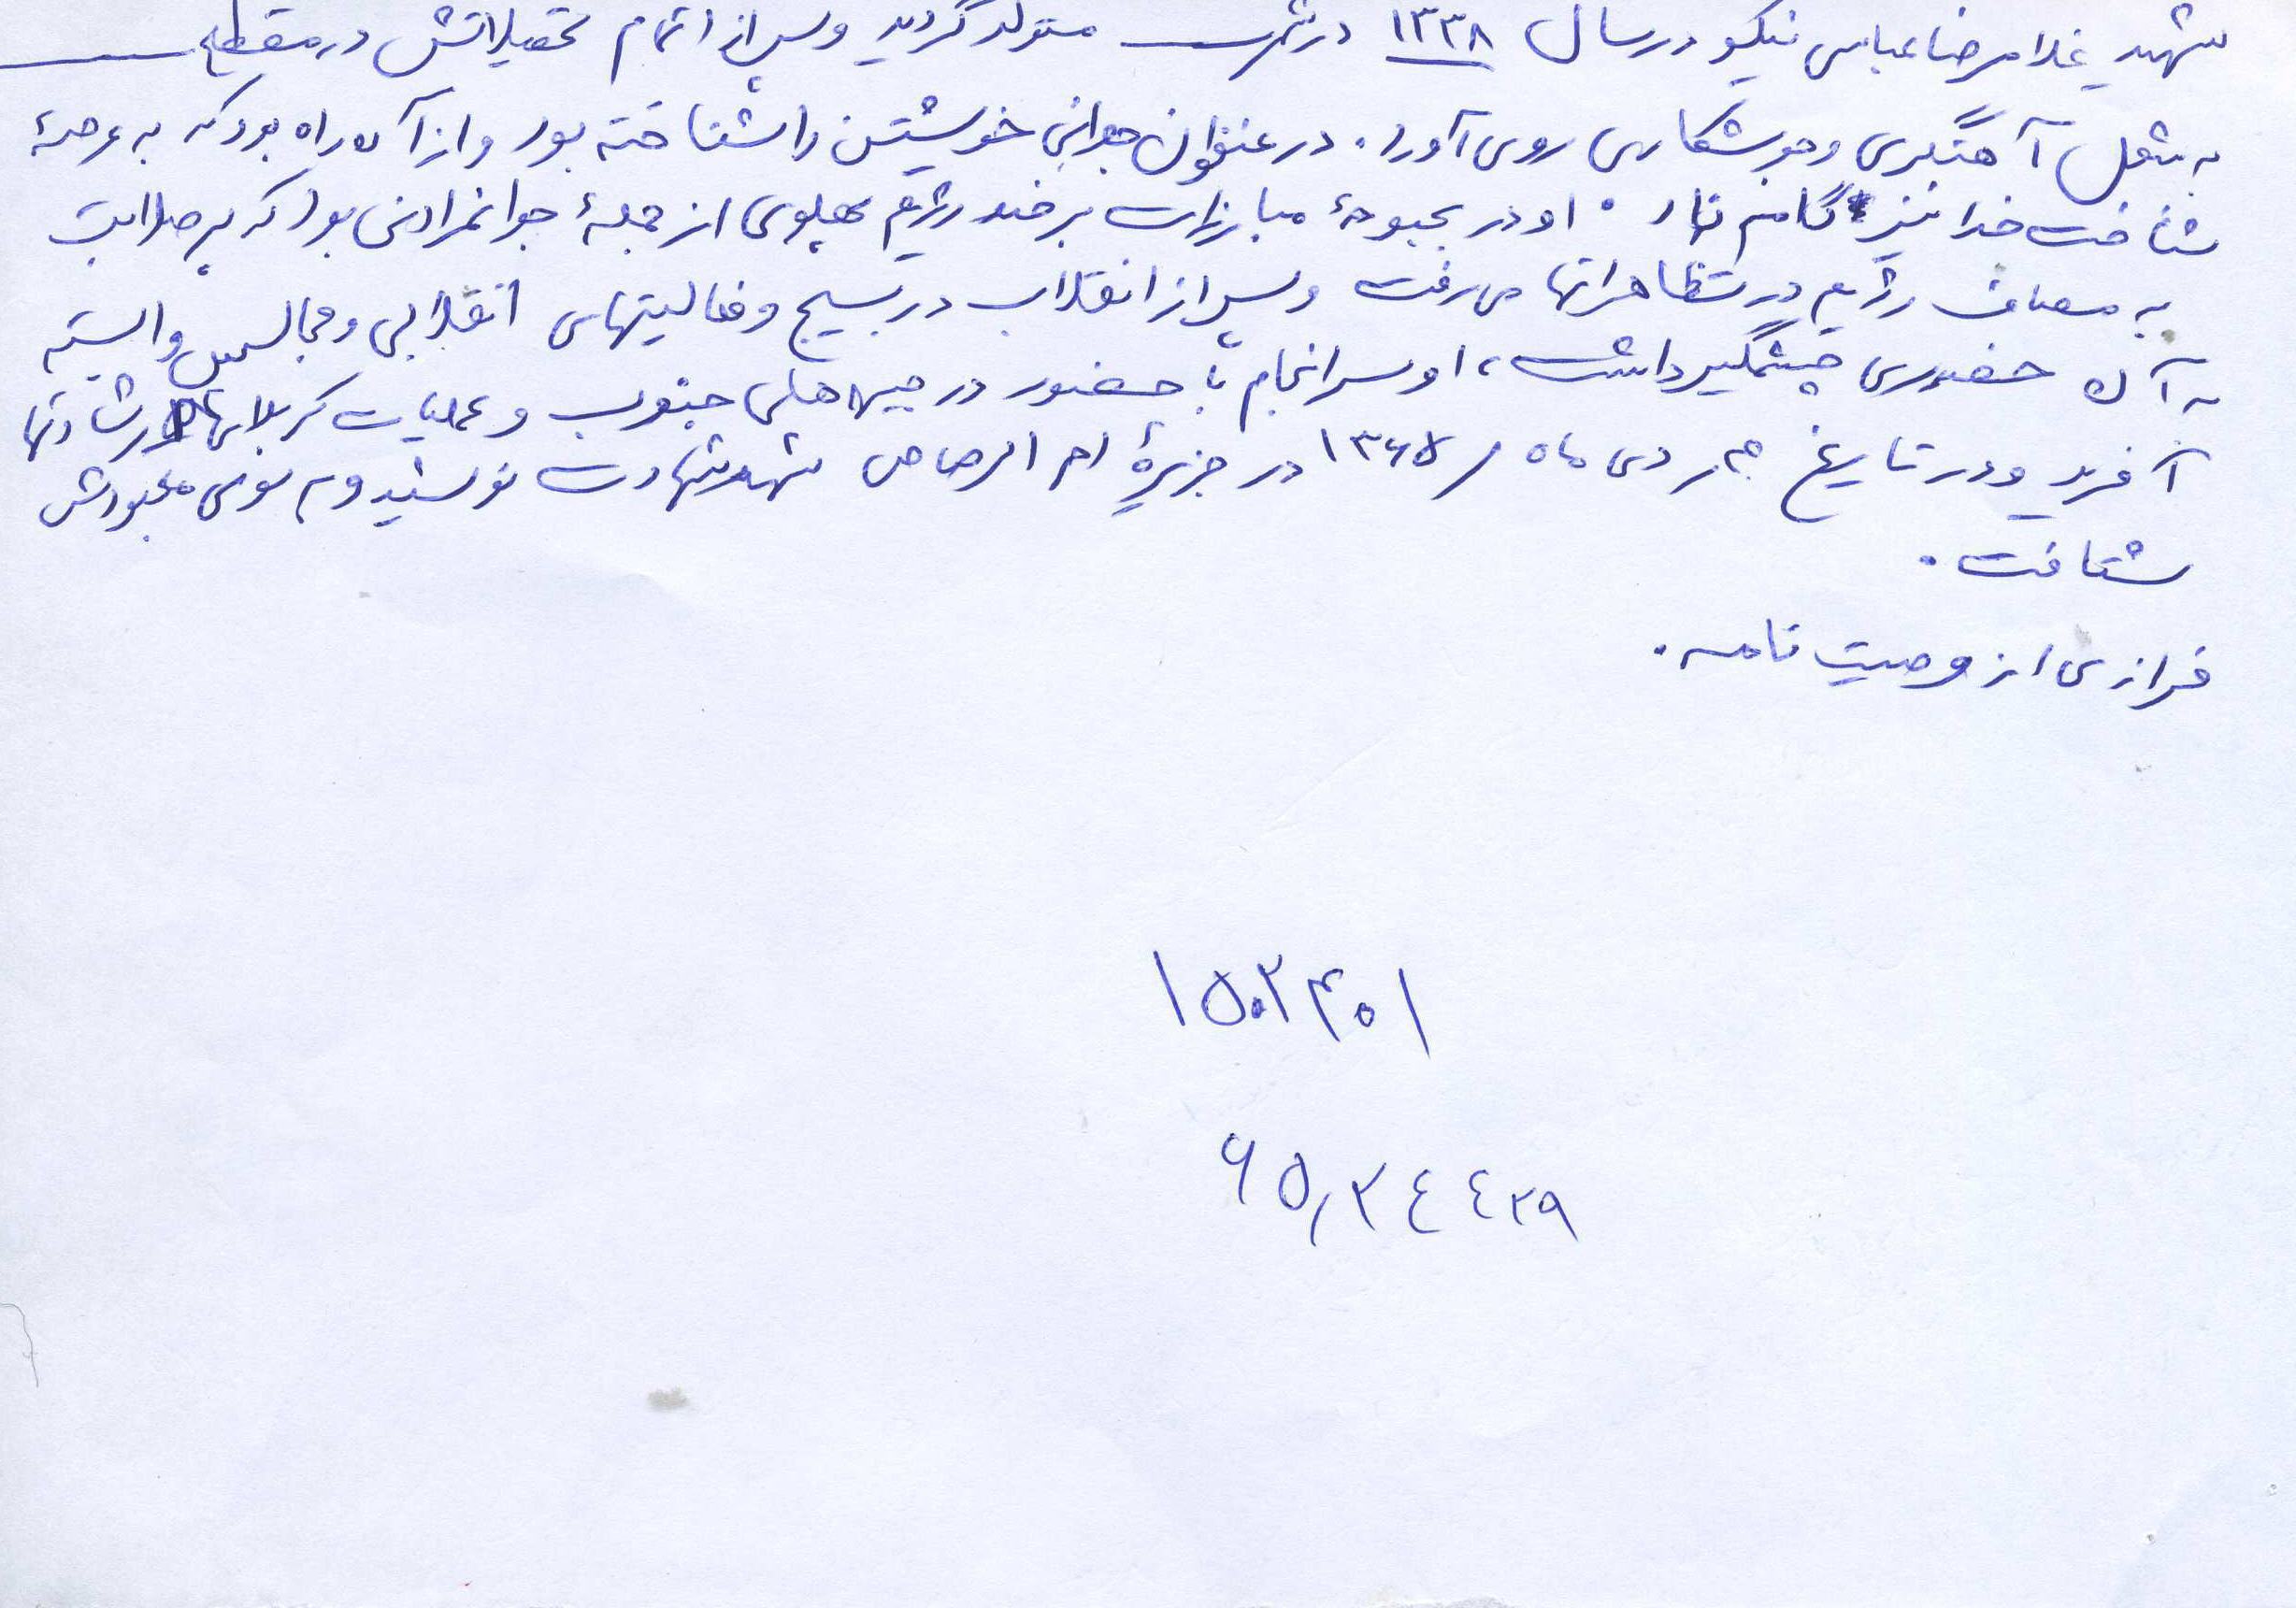 شهید غلامرضا عباسی نیکو در سال ۱۳۳۸ در شهر متولد گردید و پس از اتمام تحصیلاتش در مقطع
به شغل آهنگری و جوشکاری روی آورد. در عنفوان جوانی خویشتن را شناخته بود و از آن راه بود که به عرصهٔ
شناخت خدا نیز گام نهاد. او در بحبوحهٔ مبارزات بر ضد رژیم پهلوی از جملهٔ جوانمردانی بود که پر صلابت
به مصاف رژیم در تظاهراتها می رفت و پس از انقلاب در بسیج و فعالیتهای انقلابی و مجالس وابسته
به آن حضوری چشمگیر داشت، او سرانجام با حضور در جبهه های جنوب و عملیات کربلای رشادتها
آفرید و در تاریخ دی ماه / ۱۳۶۵ در جزیرهٔ ام الرصاص شهد شهادت نوشید و به سوی معبودش
شتافت.
فرازی از وصیت نامه.
۱۵۰۲۴۰۱
۶۵٫۳۴۴۳۹